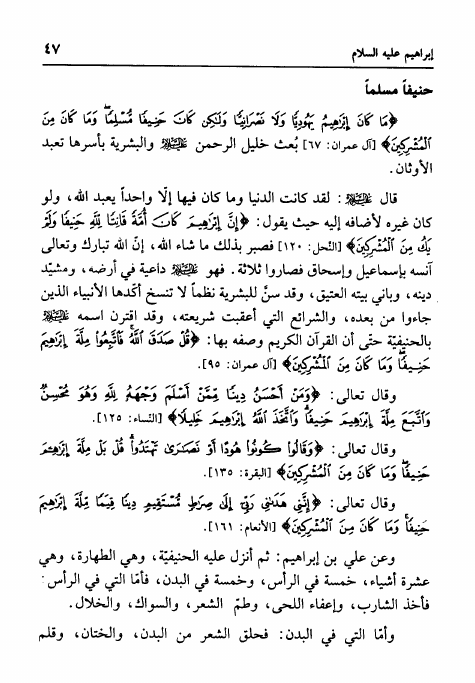 إبراهيم عليه السلام ٤٧
حنيفاً مسلماً
﴿مَا كَانَ إِبْرَاهِيمُ يَهُودِيًّا وَلَا نَصْرَانِيًّا وَلَٰكِن كَانَ حَنِيفًا مُّسْلِمًا وَمَا كَانَ مِنَ
الْمُشْرِكِينَ﴾ [آل عمران: ٦٧] بُعث خليل الرحمن والبشرية بأسرها تعبد
الأوثان.
قال : لقد كانت الدنيا وما كان فيها إلّا واحداً يعبد الله، ولو
كان غيره لأضافه إليه حيث يقول: ﴿إِنَّ إِبْرَاهِيمَ كَانَ أُمَّةً قَانِتًا لِّلَّهِ حَنِيفًا وَلَمْ
يَكُ مِنَ الْمُشْرِكِينَ﴾ [النّحل: ١٢٠] فصبر بذلك ما شاء الله، إنّ الله تبارك وتعالى
آنسه بإسماعيل وإسحاق فصاروا ثلاثة. فهو داعية في أرضه، ومشيّد
دينه، وباني بيته العتيق، وقد سنّ للبشرية نظماً لا تنسخ أكدها الأنبياء الذين
جاءوا من بعده، والشرائع التي أعقبت شريعته، وقد اقترن اسمه
بالحنيفيّة حتّى أن القرآن الكريم وصفه بها: ﴿قُلْ صَدَقَ اللَّهُ فَاتَّبِعُوا مِلَّةَ إِبْرَاهِيمَ
حَنِيفًا وَمَا كَانَ مِنَ الْمُشْرِكِينَ﴾ [آل عمران: ٩٥].
وقال تعالى: ﴿وَمَنْ أَحْسَنُ دِينًا مِّمَّنْ أَسْلَمَ وَجْهَهُ لِلَّهِ وَهُوَ مُحْسِنٌ
وَاتَّبَعَ مِلَّةَ إِبْرَاهِيمَ حَنِيفًا وَاتَّخَذَ اللَّهُ إِبْرَاهِيمَ خَلِيلًا﴾ [النّساء: ١٢٥].
وقال تعالى: ﴿وَقَالُوا كُونُوا هُودًا أَوْ نَصَارَىٰ تَهْتَدُوا قُلْ بَلْ مِلَّةَ إِبْرَاهِيمَ
حَنِيفًا وَمَا كَانَ مِنَ الْمُشْرِكِينَ﴾ [البقرة: ١٣٥].
وقال تعالى: ﴿إِنَّنِي هَدَانِي رَبِّي إِلَىٰ صِرَاطٍ مُّسْتَقِيمٍ دِينًا قِيَمًا مِّلَّةَ إِبْرَاهِيمَ
حَنِيفًا وَمَا كَانَ مِنَ الْمُشْرِكِينَ﴾ [الأنعام: ١٦١].
وعن علي بن إبراهيم: ثم أنزل عليه الحنيفيّة، وهي الطهارة، وهي
عشرة أشياء، خمسة في الرأس، وخمسة في البدن، فأمّا التي في الرأس:
فأخذ الشارب، وإعفاء اللحى، وطمّ الشعر، والسواك، والخلال.
وأمّا التي في البدن: فحلق الشعر من البدن، والختان، وقلم